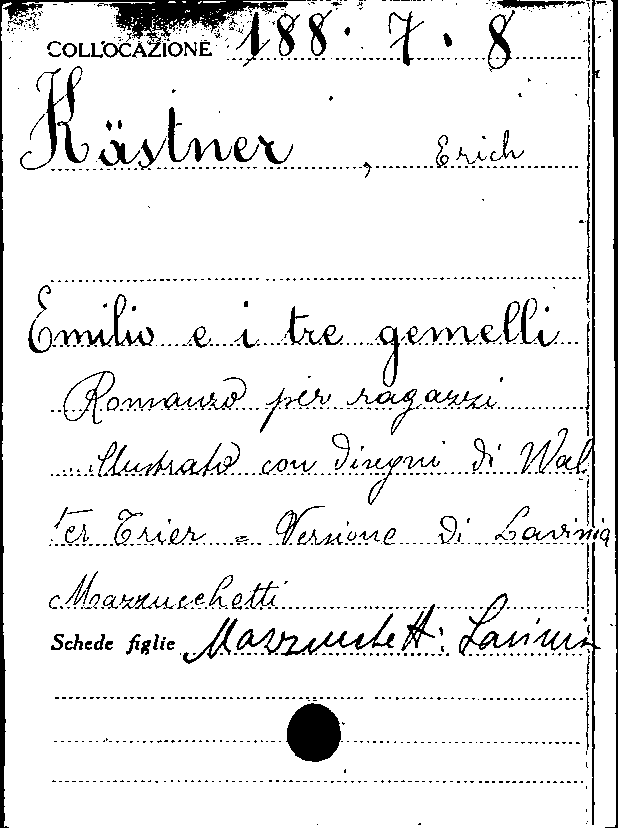 COLLOCAZIONE 188. 7. 8
Kästner, Erich
Emilio e i tre gemelli
Romanzo per ragazzi
illustrato con disegni di Wal
ter Trier = Versione di Lavinia
Mazzucchetti
Schede figlie Mazzucchetti Lavinia